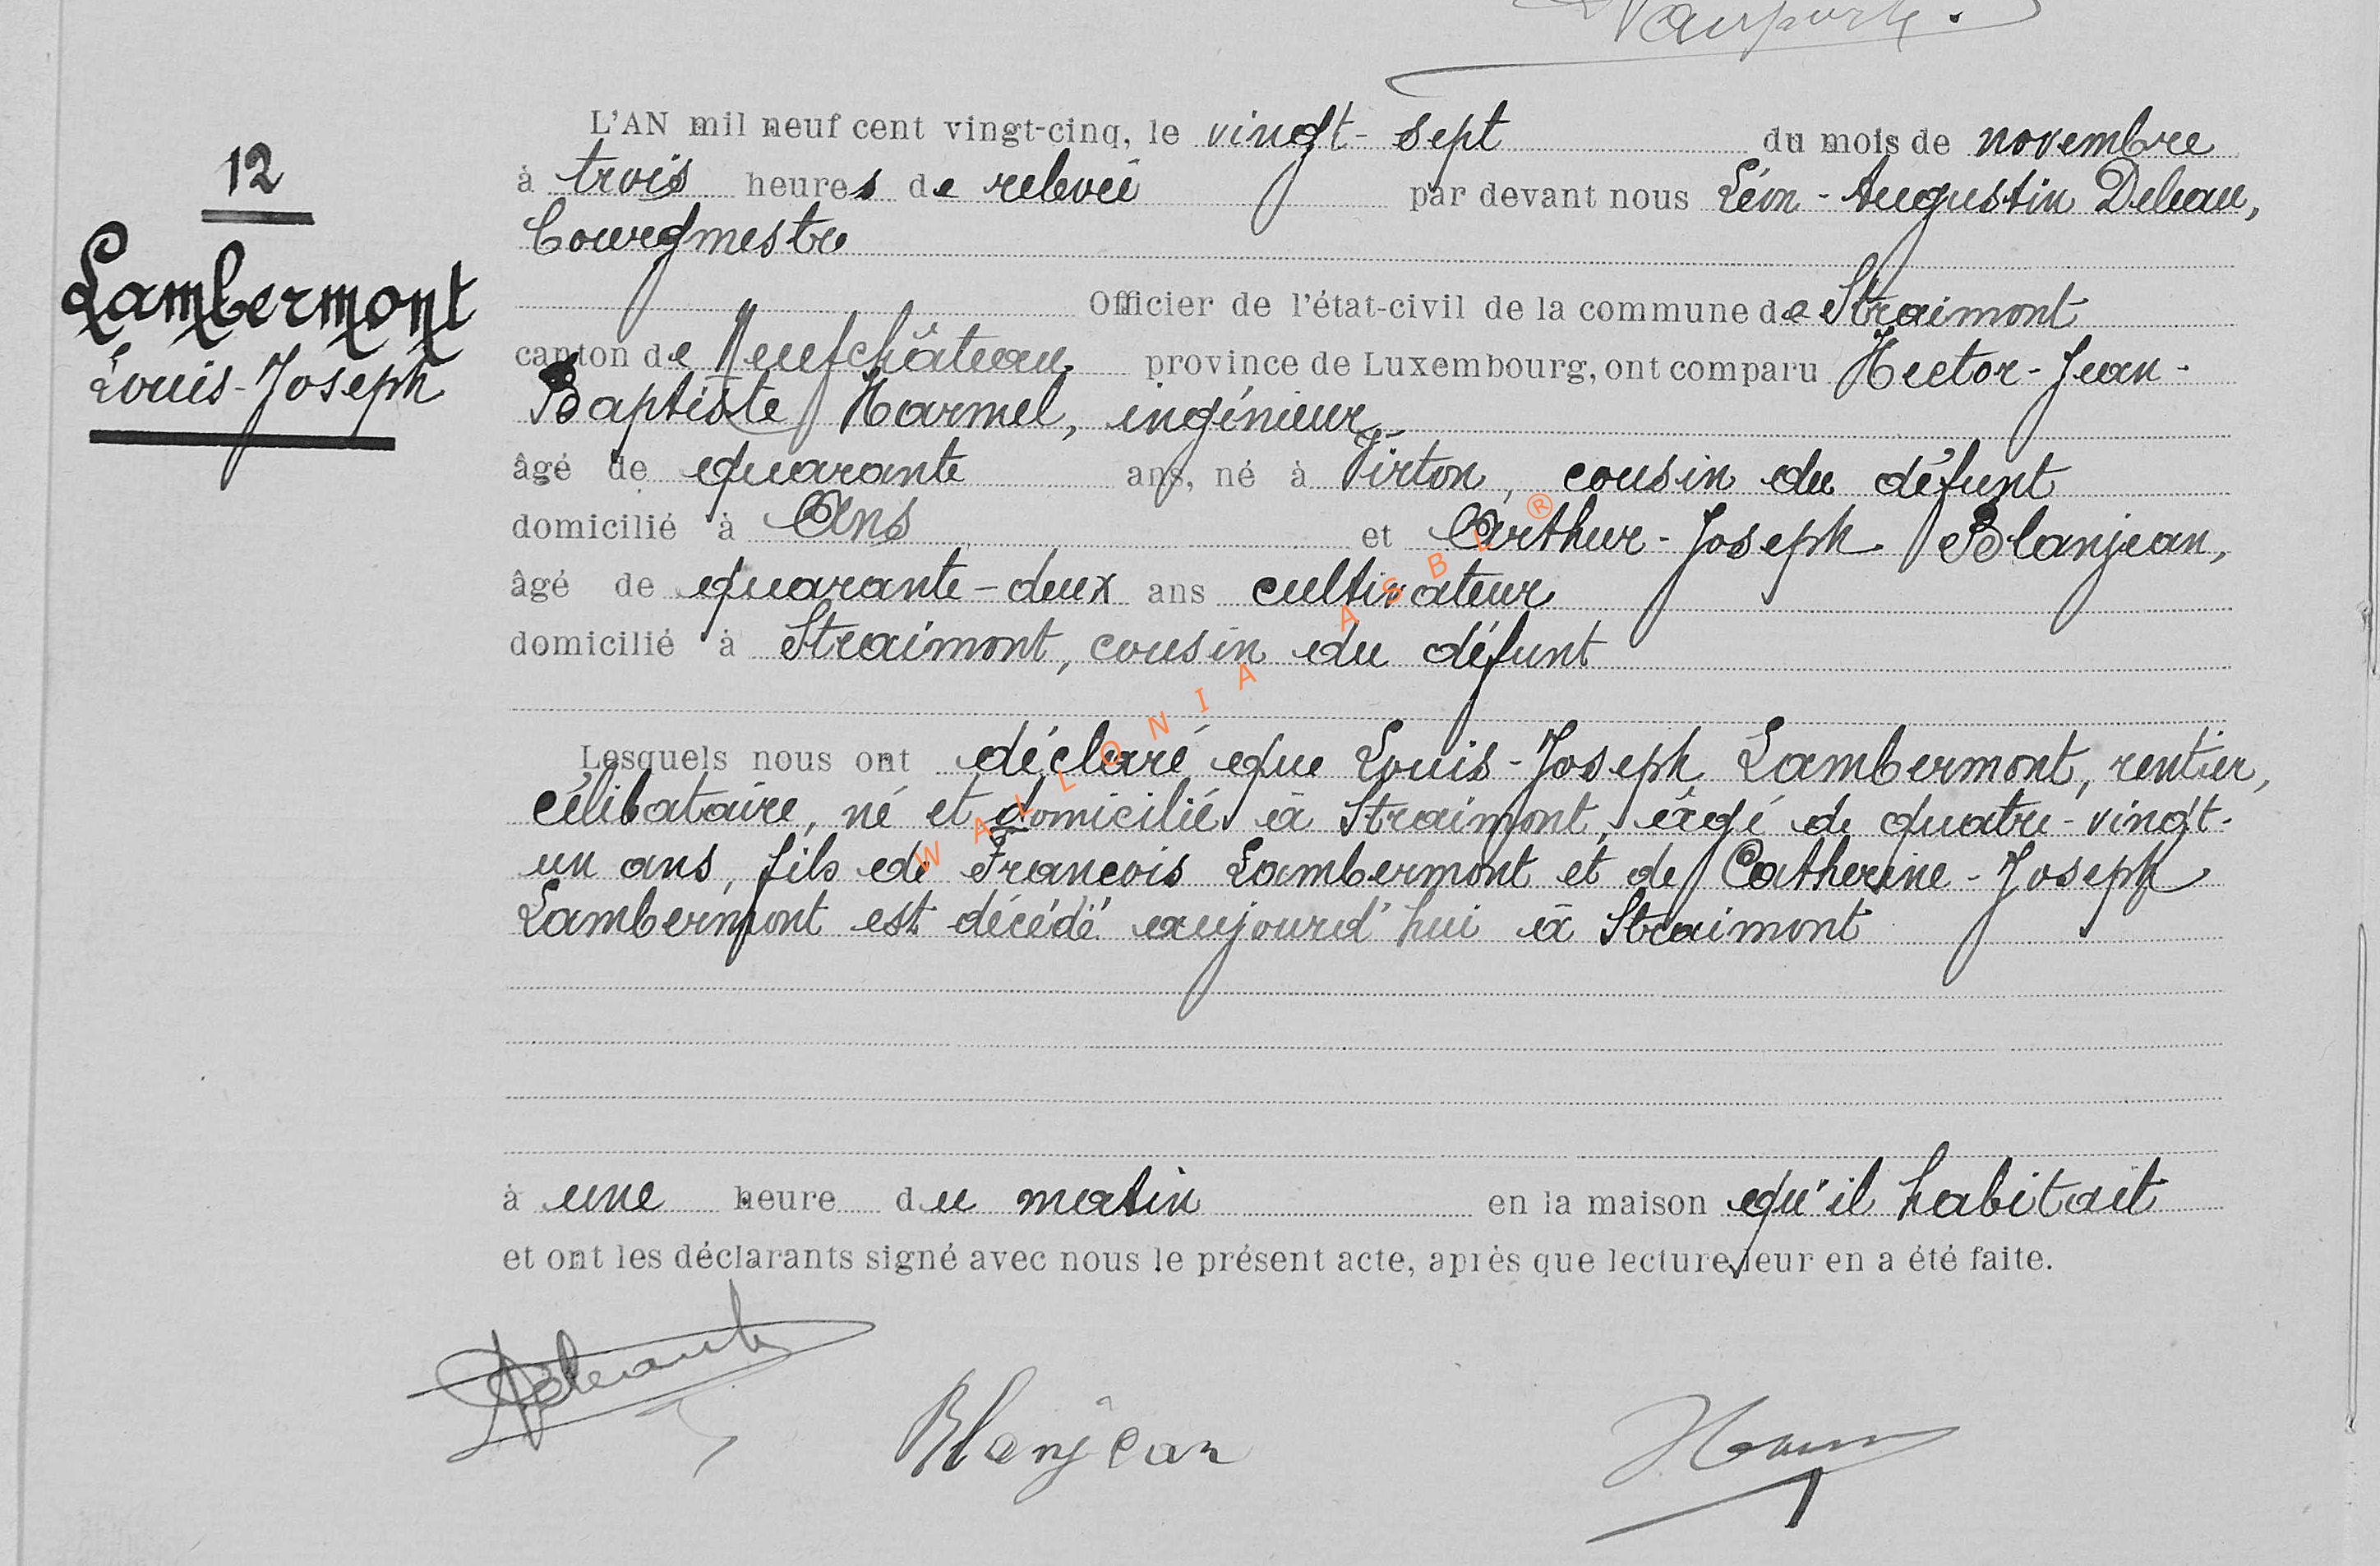 12
Lambermont
Louis-Joseph
L'AN mil neuf cent vingt-cinq, le vingt-sept du mois de novembre
à trois heures de relevée par devant nous Léon-Augustin Deleau,
bourgmestre
Officier de l'état-civil de la commune de Straimont
canton de Neufchâteau province de Luxembourg, ont comparu Hector-Jean-
Baptiste Harmel, ingénieur
âgé de quarante ans, né à Virton, cousin du défunt
domicilié à Ans et Arthur-Joseph Blanjean,
âgé de quarante-deux ans cultivateur
domicilié à Straimont, cousin du défunt
Lesquels nous ont déclaré que Louis-Joseph Lambermont, rentier,
célibataire, né et domicilié à Straimont, âgé de quatre-vingt-
un ans, fils de Francois Lambermont et de Catherine-Joseph
Lambermont est décédé aujourd'hui à Straimont
à une heure du matin en la maison qu'il habitait
et ont les déclarants signé avec nous le présent acte, après que lecture leur en a été faite.
Blanjean
WALLONIA ASBL ®